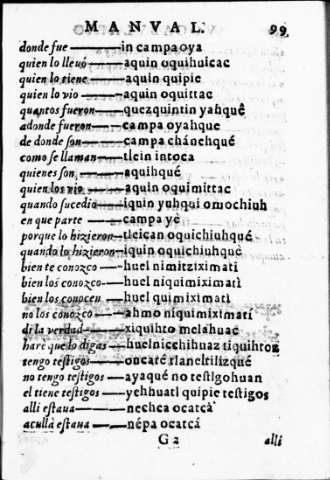 MANVAL. 99
donde fue — in campa oya
quien lo lleuó — aquin oquihuicac
quien lo tiene — aquin quipie
quien lo vio — aquin oquittac
quantos fueron — quezquintin yahquê
adonde fueron — campa oyahque
de donde son — campa chánehquê
como se llaman — tlein intoca
quienes son, — aquihquê
quien los vio — aquin oquimittac
quando sucedio — iquin yuhqui omochiuh
en que parte — campa yè
porque lo hizieron — tleican oquichiuhquê
quando lo hizieron — iquin oquichiuhquê
bien te conozco — huel nimitziximatì
bien los conozco — huel niquimiximatì
bien los conocen — huel quimiximatì
no los conozco — ahmo niquimiximatì
di la verdad — xiquihto melahuac
harè que lo digas — huelnicchihuaz tiquihtoz
tengo testigos — oncatê tlaneltilizquê
no tengo testigos — ayaquê no testigohuan
el tiene testigos — yehhuatl quipie testigos
alli estaua — nechca ocatcà
acullà estaua — népa ocatcá
G 2 alli